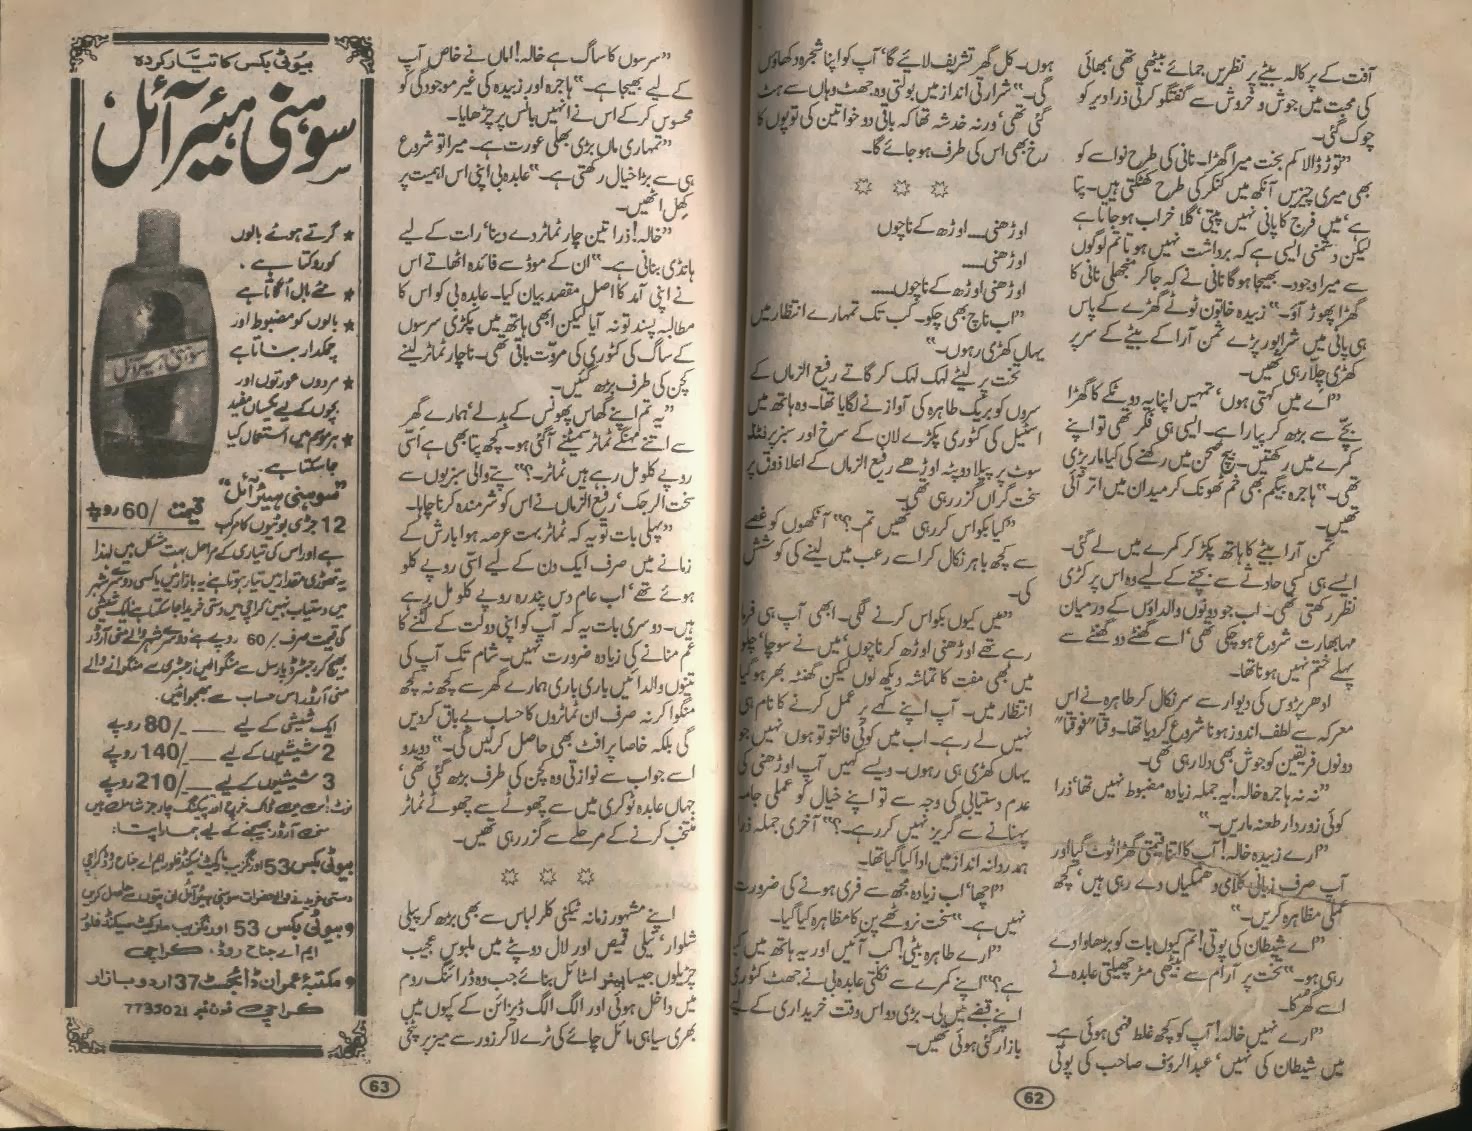 آفت کے پرکالہ بیٹے پر نظریں جمائے بیٹھی تھی، بھائی
کی محبت میں جوش و خروش سے گفتگو کرتی ذرا دیر کو
چوک گئی۔
”توڑ ڈالا کم بخت میرا گھڑا۔ نانی کی طرح نواسے کو
بھی میری چیزیں آنکھ میں کنکر کی طرح کھٹکتی ہیں۔ پتا
ہے، میں فرج کا پانی نہیں پیتی، گلا خراب ہو جاتا ہے
لیکن دشمنی ایسی ہے کہ برداشت نہیں ہوتا تم لوگوں
سے میرا وجود۔ بھیجا ہو گا نانی نے کہ جا کر منجھلی نانی کا
گھڑا پھوڑ آؤ۔“ زبیدہ خاتون ٹوٹے گھڑے کے پاس
ہی پانی میں شرابور پڑے ثمن آرا کے بیٹے کے سر پر
کھڑی چلا رہی تھیں۔
”اے میں کہتی ہوں، تمہیں اپنا یہ دو ٹکے کا گھڑا
بچے سے بڑھ کر پیارا ہے۔ ایسی ہی فکر تھی تو اپنے
کمرے میں رکھتیں۔ بیچ صحن میں رکھنے کی کیا مار پڑی
تھی۔“ ہاجرہ بیگم بھی خم ٹھونک کر میدان میں اتر آئی
تھیں۔
ثمن آرا بیٹے کا ہاتھ پکڑ کر کمرے میں لے گئی۔
ایسے ہی کسی حادثے سے بچنے کے لیے وہ اس پر کڑی
نظر رکھتی تھی۔ اب جو دونوں والداؤں کے درمیان
مہابھارت شروع ہو چکی تھی، اسے گھنٹے دو گھنٹے سے
پہلے ختم نہیں ہونا تھا۔
ادھر پڑوس کی دیوار سے سر نکال کر طاہرہ نے اس
معرکہ سے لطف اندوز ہونا شروع کر دیا تھا۔ وقتاً فوقتاً
دونوں فریقین کو جوش بھی دلا رہی تھی۔
”نہ نہ ہاجرہ خالہ! یہ جملہ زیادہ مضبوط نہیں تھا، ذرا
کوئی زوردار طعنہ ماریں۔“
”ارے زبیدہ خالہ! آپ کا اتنا قیمتی گھڑا ٹوٹ گیا اور
آپ صرف زبانی کلامی دھمکیاں دے رہی ہیں، کچھ
عملی مظاہرہ کریں۔“
”اے شیطان کی پوتی! تم کیوں بات کو بڑھاوا دے
رہی ہو۔“ تخت پر آرام سے بیٹھی مٹر چھیلتی عابدہ نے
اسے گھرکا۔
”ارے نہیں خالہ! آپ کو کچھ غلط فہمی ہوئی ہے۔
میں شیطان کی نہیں، عبدالرؤف صاحب کی پوتی
ہوں۔ کل گھر تشریف لائیے گا، آپ کو اپنا شجرہ دکھاؤں
گی۔“ شرارتی انداز میں بولتی وہ جھٹ وہاں سے ہٹ
گئی تھی، ورنہ خدشہ تھا کہ باقی دو خواتین کی توپوں کا
رخ بھی اس کی طرف ہو جائے گا۔
اوڑھنی۔۔۔۔ اوڑھ کے ناچوں
اوڑھنی۔۔۔۔
اوڑھنی اوڑھ کے ناچوں۔۔۔۔
”اب ناچ بھی چکو۔ کب تک تمہارے انتظار میں
یہاں کھڑی رہوں۔“
تخت پر لیٹے لہک لہک کر گاتے رفیع الزماں کے
سروں کو بریک طاہرہ کی آواز نے لگایا تھا۔ وہ ہاتھ میں
اسٹیل کی کٹوری پکڑے لان کے سرخ اور سبز پرنٹڈ
سوٹ پر پیلا دوپٹہ اوڑھے رفیع الزماں کے اعلا ذوق پر
سخت گراں گزر رہی تھی۔
”کیا بکواس کر رہی تھیں تم۔؟“ آنکھوں کو غصے
سے کچھ باہر نکال کر اسے رعب میں لینے کی کوشش
کی۔
”میں کیوں بکواس کرنے لگی۔ ابھی آپ ہی فرما
رہے تھے اوڑھنی اوڑھ کر ناچوں، میں نے سوچا، چلو
میں بھی مفت کا تماشہ دیکھ لوں لیکن گھنٹہ بھر ہو گیا
انتظار میں۔ آپ اپنے کہے پر عمل کرنے کا نام ہی
نہیں لے رہے۔ اب میں کوئی فالتو تو ہوں نہیں جو
یہاں کھڑی ہی رہوں۔ ویسے کہیں آپ اوڑھنی کی
عدم دستیابی کی وجہ سے تو اپنے خیال کو عملی جامہ
پہنانے سے گریز نہیں کر رہے۔؟“ آخری جملہ ذرا
ہمدردانہ انداز میں ادا کیا گیا تھا۔
”اچھا، اب زیادہ مجھ سے فری ہونے کی ضرورت
نہیں ہے۔“ سخت نروٹھے پن کا مظاہرہ کیا گیا۔
”ارے طاہرہ بیٹی! کب آئیں اور یہ ہاتھ میں کیا
ہے؟“ اپنے کمرے سے نکلتی عابدہ بی نے جھٹ کٹوری
اپنے قبضے میں لی۔ بڑی دو اس وقت خریداری کے لیے
بازار گئی ہوئی تھیں۔
62
”سرسوں کا ساگ ہے خالہ! اماں نے خاص آپ
کے لیے بھیجا ہے۔“ ہاجرہ اور زبیدہ کی غیر موجودگی کو
محسوس کر کے اس نے انہیں بانس پر چڑھایا۔
”تمہاری ماں بڑی بھلی عورت ہے۔ میرا تو شروع
ہی سے بڑا خیال رکھتی ہے۔“ عابدہ بی اپنی اس اہمیت پر
کھل اٹھیں۔
”خالہ! ذرا تین چار ٹماٹر دے دینا، رات کے لیے
ہانڈی بنانی ہے۔“ ان کے موڈ سے فائدہ اٹھاتے اس
نے اپنی آمد کا اصل مقصد بیان کیا۔ عابدہ بی کو اس کا
مطالبہ پسند تو نہ آیا لیکن ابھی ہاتھ میں پکڑی سرسوں
کے ساگ کی کٹوری کی مروت باقی تھی۔ ناچار ٹماٹر لینے
کچن کی طرف بڑھ گئیں۔
”یہ تم اپنے گھاس پھونس کے بدلے، ہمارے گھر
سے اتنے مہنگے ٹماٹر سمیٹنے آ گئی ہو۔ کچھ پتا بھی ہے اسّی
روپے کلو مل رہے ہیں ٹماٹر۔؟“ پتے والی سبزیوں سے
سخت الرجک، رفیع الزماں نے اس کو شرمندہ کرنا چاہا۔
”پہلی بات تو یہ کہ ٹماٹر بہت عرصہ ہوا بارش کے
زمانے میں صرف ایک دن کے لیے اسّی روپے کلو
ہوئے تھے، اب عام دس پندرہ روپے کلو مل رہے
ہیں۔ دوسری بات یہ کہ آپ کو اپنی دولت کے لٹنے کا
غم منانے کی زیادہ ضرورت نہیں۔ شام تک آپ کی
تینوں والدائیں باری باری ہمارے گھر سے کچھ نہ کچھ
منگوا کر نہ صرف ان ٹماٹروں کا حساب بے باق کر دیں
گی بلکہ خاصا پرافٹ بھی حاصل کر لیں گی۔“ دوبدو
اسے جواب سے نوازتی وہ کچن کی طرف بڑھ گئی تھی،
جہاں عابدہ ٹوکری میں سے چھوٹے سے چھوٹے ٹماٹر
منتخب کرنے کے مرحلے سے گزر رہی تھیں۔
اپنے مشہور زمانہ ٹیکنی کلر لباس سے بھی بڑھ کر پیلی
شلوار، نیلی قمیص اور لال دوپٹے میں ملبوس عجیب
چڑیلوں جیسا ہیئر اسٹائل بنائے جب وہ ڈرائنگ روم
میں داخل ہوئی اور الگ الگ ڈیزائن کے کپوں میں
بھری سیاہی مائل چائے کی ٹرے لا کر زور سے میز پر پٹخی
بیوٹی بکس کا تیار کردہ
سوہنی ہیئر آئل
★ گرتے ہوئے بالوں
کو روکتا ہے۔
★ نئے بال اگاتا ہے
★ بالوں کو مضبوط اور
چمکدار بناتا ہے
★ مردوں عورتوں اور
بچوں کے لیے یکساں مفید
★ ہر موسم میں استعمال کیا
جا سکتا ہے۔
سوہنی ہیئر آئل
”سوہنی ہیئر آئل“
قیمت /60 روپے
12 جڑی بوٹیوں کا مرکب
ہے اور اس کی تیاری کے مراحل بہت مشکل ہیں لہٰذا
یہ تھوڑی مقدار میں تیار ہوتا ہے یہ بازار میں یا کسی دوسرے شہر
میں دستیاب نہیں کراچی میں دستی خریدا جا سکتا ہے ایک شیشی
کی قیمت صرف /60 روپے ہے دوسرے شہر والے منی آرڈر
بھیج کر رجسٹرڈ پارسل سے منگوا لیں رجسٹری سے منگوانے والے
منی آرڈر اس حساب سے بھجوائیں۔
ایک شیشی کے لیے ___ /80 روپے
2 شیشیوں کے لیے ___ /140 روپے
3 شیشیوں کے لیے ___ /210 روپے
نوٹ: اس میں ڈاک خرچ اور پیکنگ چارجز شامل ہیں
منی آرڈر بھیجنے کے لیے ہمارا پتا:
بیوٹی بکس 53 اورنگزیب مارکیٹ سیکنڈ فلور ایم اے جناح روڈ کراچی
دستی خریدنے والے حضرات سوہنی ہیئر آئل ان پتوں سے حاصل کریں
بیوٹی بکس 53 اورنگزیب مارکیٹ سیکنڈ فلور
ایم اے جناح روڈ، کراچی
مکتبہ عمران ڈائجسٹ 37 اردو بازار
کراچی فون نمبر 7735021
63